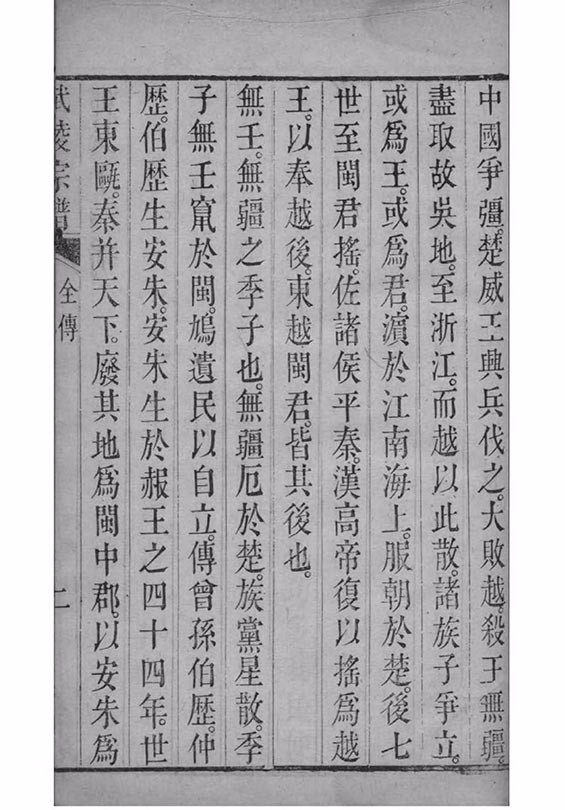 中國爭彊。楚威王興兵伐之。大敗越。殺王無疆。
盡取故吳地。至浙江。而越以此散。諸族子爭立。
或爲王。或爲君。濵於江南海上。服朝於楚。後七
世至閩君搖。佐諸侯平秦。漢高帝復以搖爲越
王。以奉越後。東越閩君。皆其後也。
無壬。無疆之季子也。無疆厄於楚。族黨星散。季
子無壬竄於閩。鳩遺民以自立。傳曾孫伯歷。仲
歷。伯歷生安朱。安朱生於赧王之四十四年。世
王東甌。秦并天下。廢其地爲閩中郡。以安朱爲
武陵宗譜 全傳 二